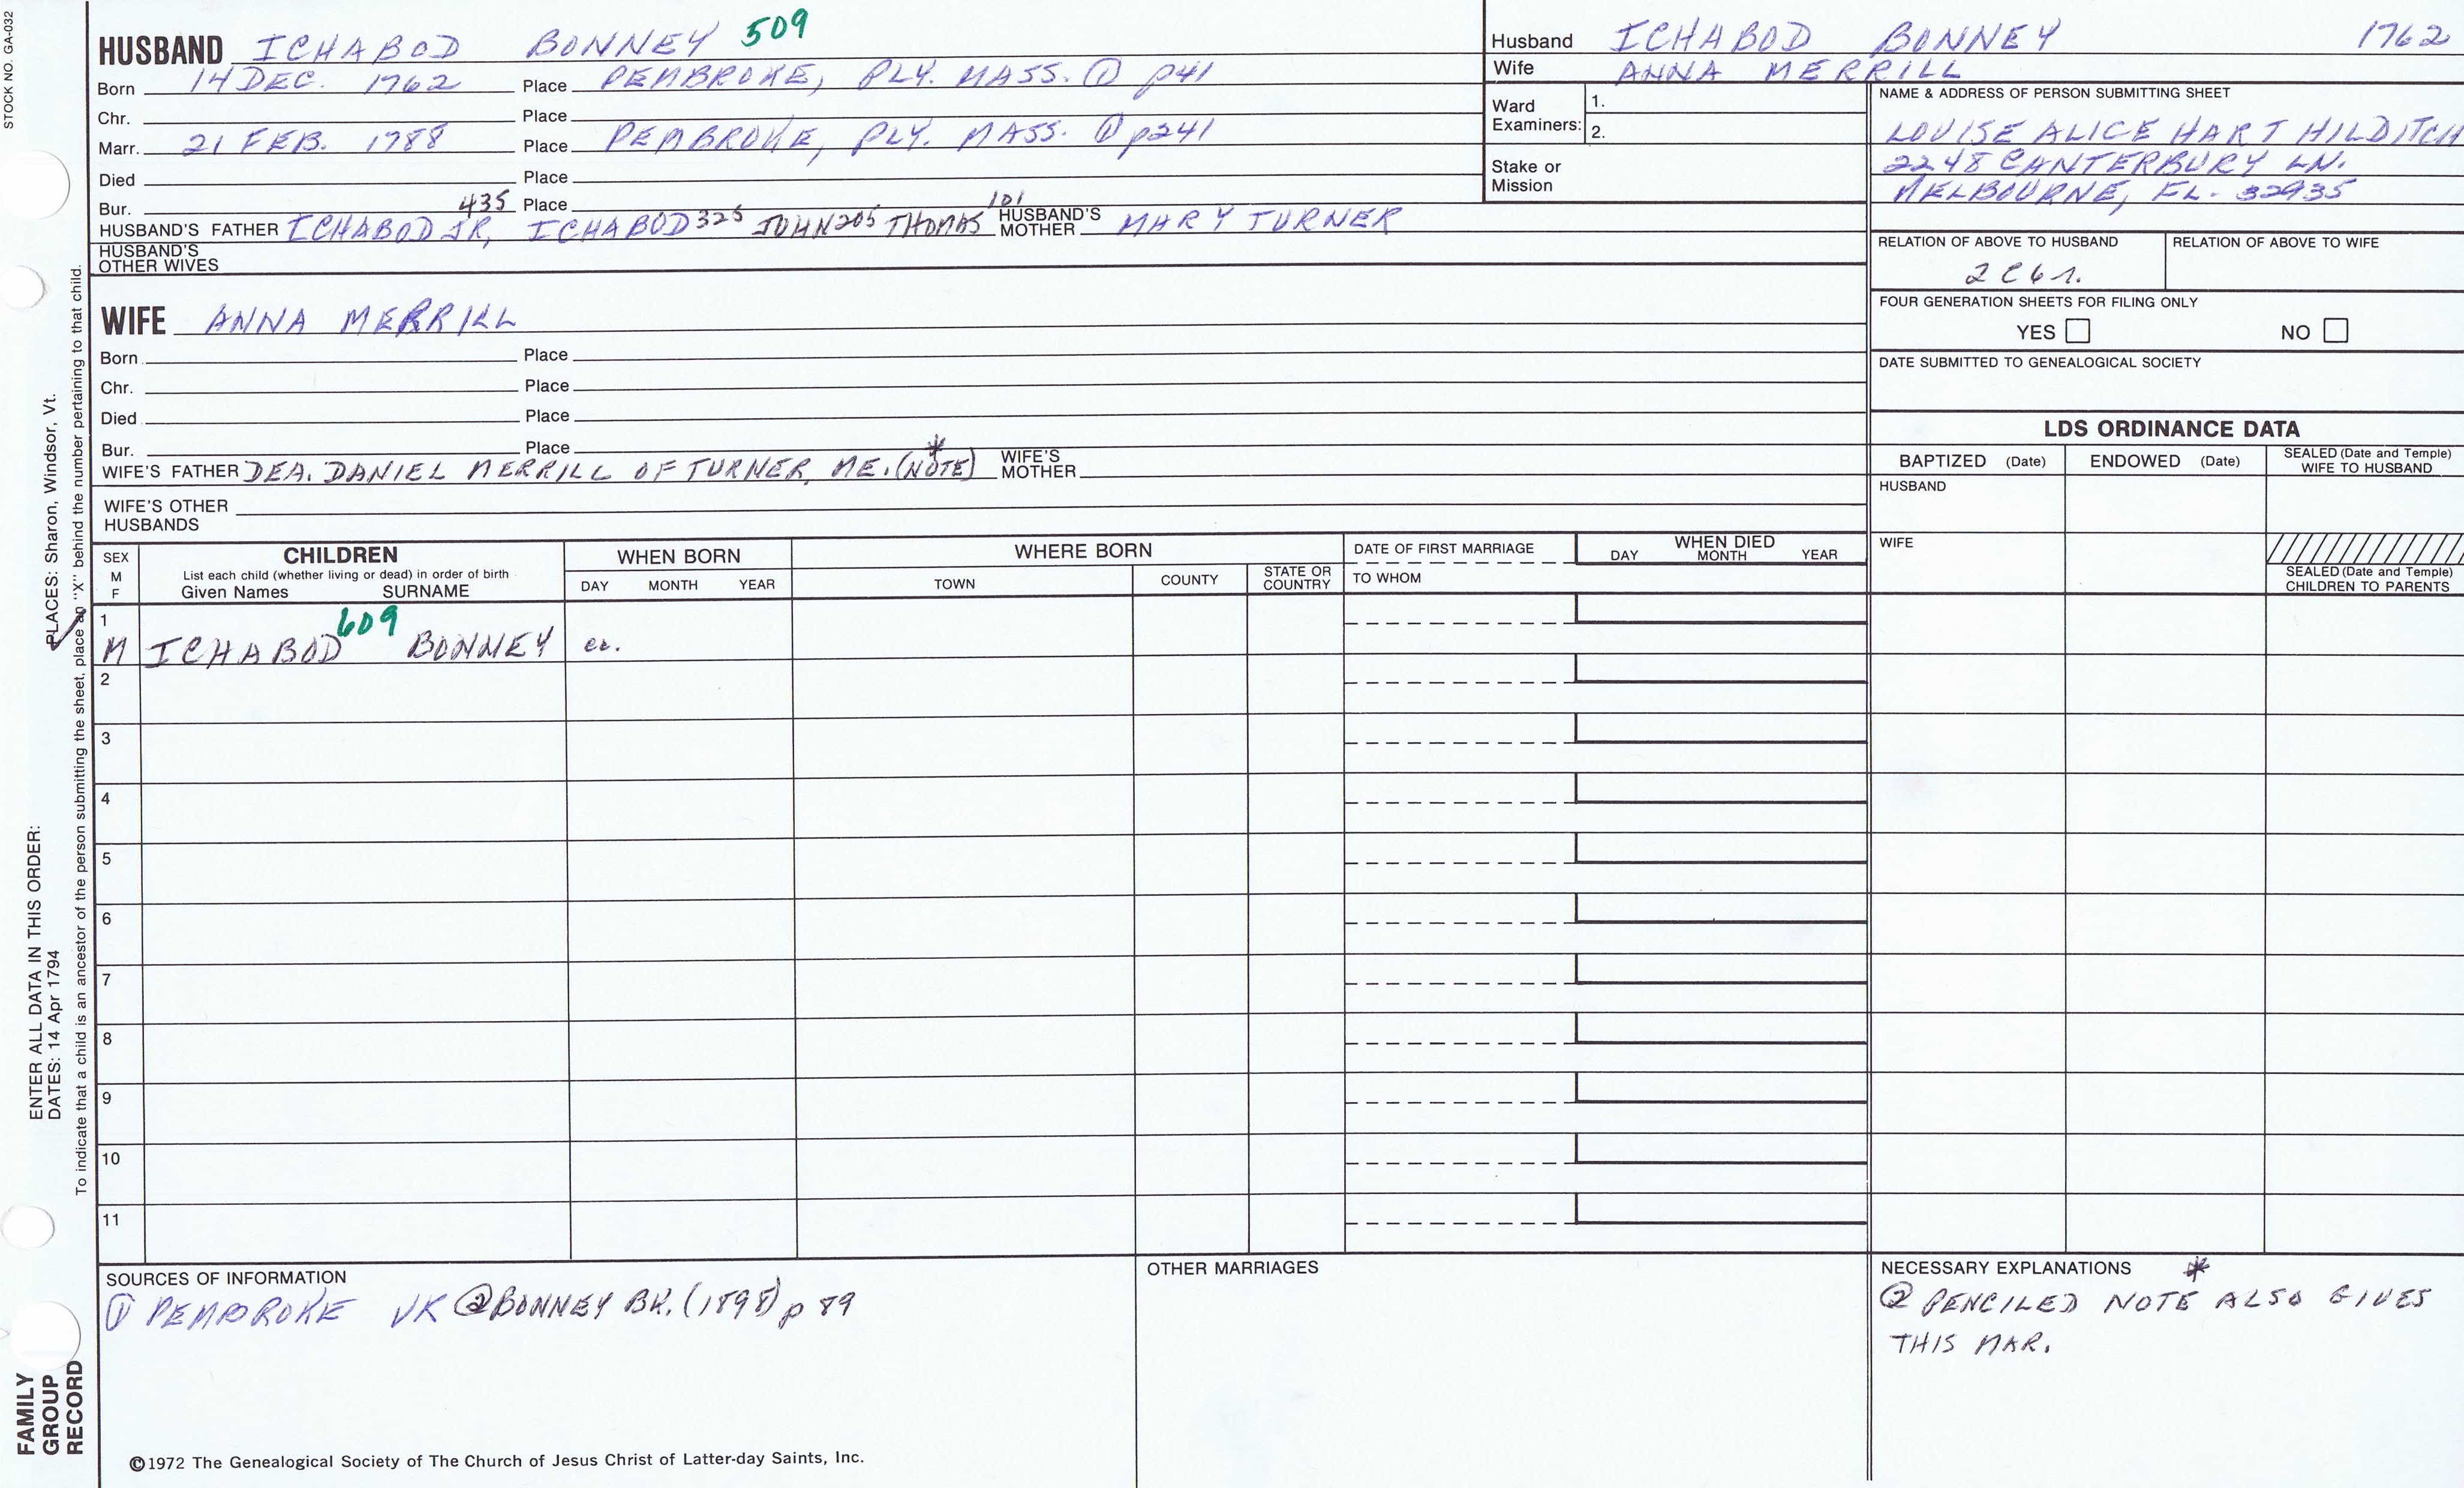 STOCK NO. GA-032
HUSBAND ICHABOD BONNEY 509
Born 14 DEC. 1762 Place PEMBROKE, PLY. MASS. ① p41
Chr. Place
Marr. 21 FEB. 1788 Place PEMBROKE, PLY. MASS. ① p241
Died Place
Bur. 435 Place 101
HUSBAND'S FATHER ICHABOD JR, ICHABOD 325 JOHN 205 THOMAS HUSBAND'S MOTHER MARY TURNER
HUSBAND'S OTHER WIVES
Husband ICHABOD BONNEY 1762
Wife ANNA MERRILL
Ward Examiners: 1.
2.
Stake or Mission
NAME & ADDRESS OF PERSON SUBMITTING SHEET
LOUISE ALICE HART HILDITCH
2248 CANTERBURY LN.
MELBOURNE, FL. 32935
RELATION OF ABOVE TO HUSBAND RELATION OF ABOVE TO WIFE
2C6r.
FOUR GENERATION SHEETS FOR FILING ONLY
YES NO
DATE SUBMITTED TO GENEALOGICAL SOCIETY
WIFE ANNA MERRILL
Born Place
Chr. Place
Died Place
Bur. Place
WIFE'S FATHER DEA. DANIEL MERRILL OF TURNER, ME. (NOTE)* WIFE'S MOTHER
WIFE'S OTHER HUSBANDS
LDS ORDINANCE DATA
BAPTIZED (Date) ENDOWED (Date) SEALED (Date and Temple) WIFE TO HUSBAND
HUSBAND
WIFE
SEALED (Date and Temple) CHILDREN TO PARENTS
SEX M F
CHILDREN
List each child (whether living or dead) in order of birth
Given Names SURNAME
WHEN BORN
DAY MONTH YEAR
WHERE BORN
TOWN COUNTY STATE OR COUNTRY
DATE OF FIRST MARRIAGE
TO WHOM
WHEN DIED
DAY MONTH YEAR
1
M ICHABOD 609 BONNEY ca.
2
3
4
5
6
7
8
9
10
11
SOURCES OF INFORMATION
① PEMBROKE VR ② BONNEY BK. (1898) p 89
OTHER MARRIAGES
NECESSARY EXPLANATIONS *
② PENCILED NOTE ALSO GIVES
THIS MAR.
©1972 The Genealogical Society of The Church of Jesus Christ of Latter-day Saints, Inc.
FAMILY GROUP RECORD
ENTER ALL DATA IN THIS ORDER:
DATES: 14 Apr 1794 PLACES: Sharon, Windsor, Vt.
To indicate that a child is an ancestor of the person submitting the sheet, place an "X" behind the number pertaining to that child.